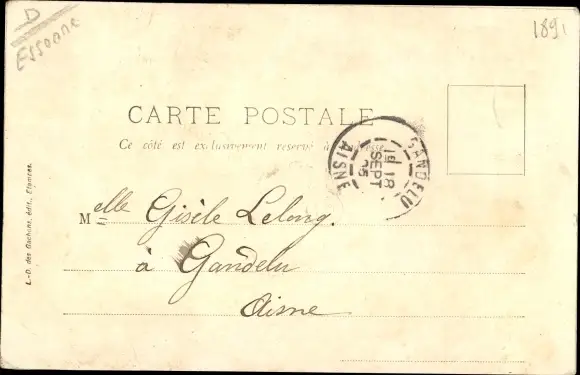 D
Essonne
1891
CARTE POSTALE
Ce côté est exclusivement réservé à
GANDELU
18
SEPT
05
AISNE
Melle Gisèle Lelong.
à Gandelu
Aisne
L.-D. des Gachons, édit., Etampes.